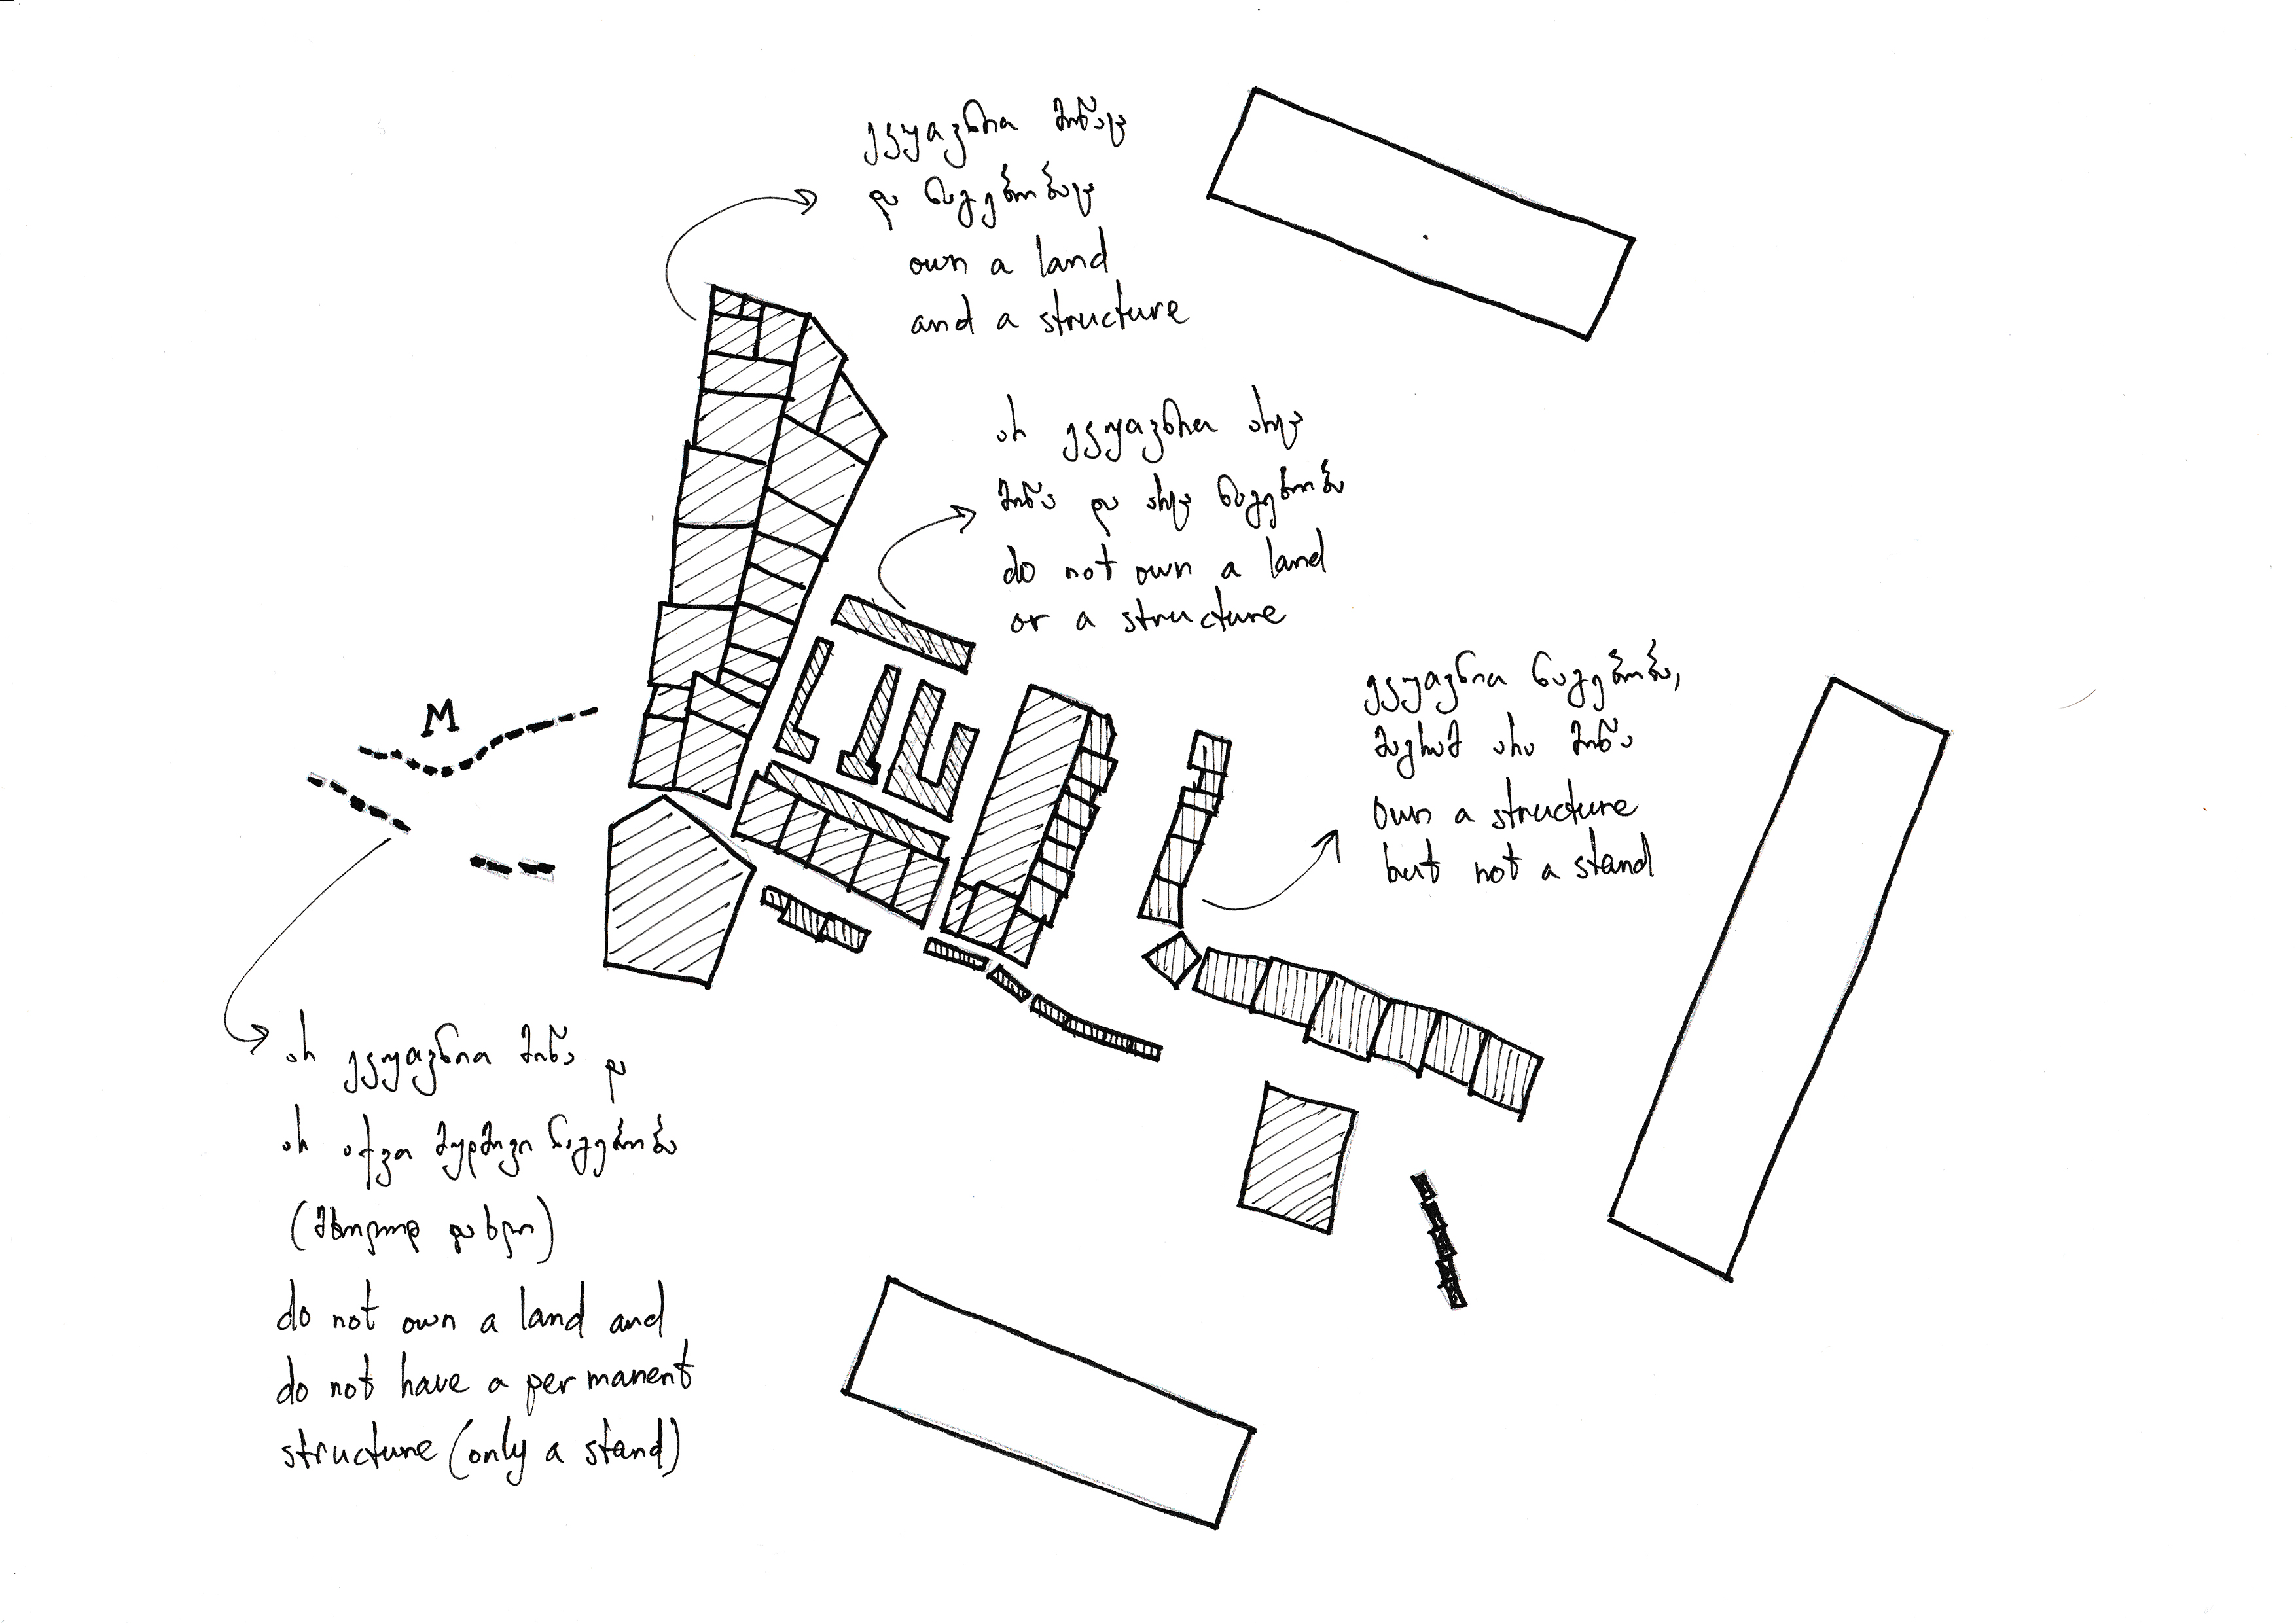 ეკუთვნით მიწაც
და ნაგებობაც
own a land
and a structure
არ ეკუთვნით არც
მიწა და არც ნაგებობა
do not own a land
or a structure
ეკუთვნით ნაგებობა,
მაგრამ არა მიწა
own a structure
but not a stand
M
არ ეკუთვნით მიწა და
არ აქვთ მუდმივი ნაგებობა
(მხოლოდ დახლი)
do not own a land and
do not have a permanent
structure (only a stand)